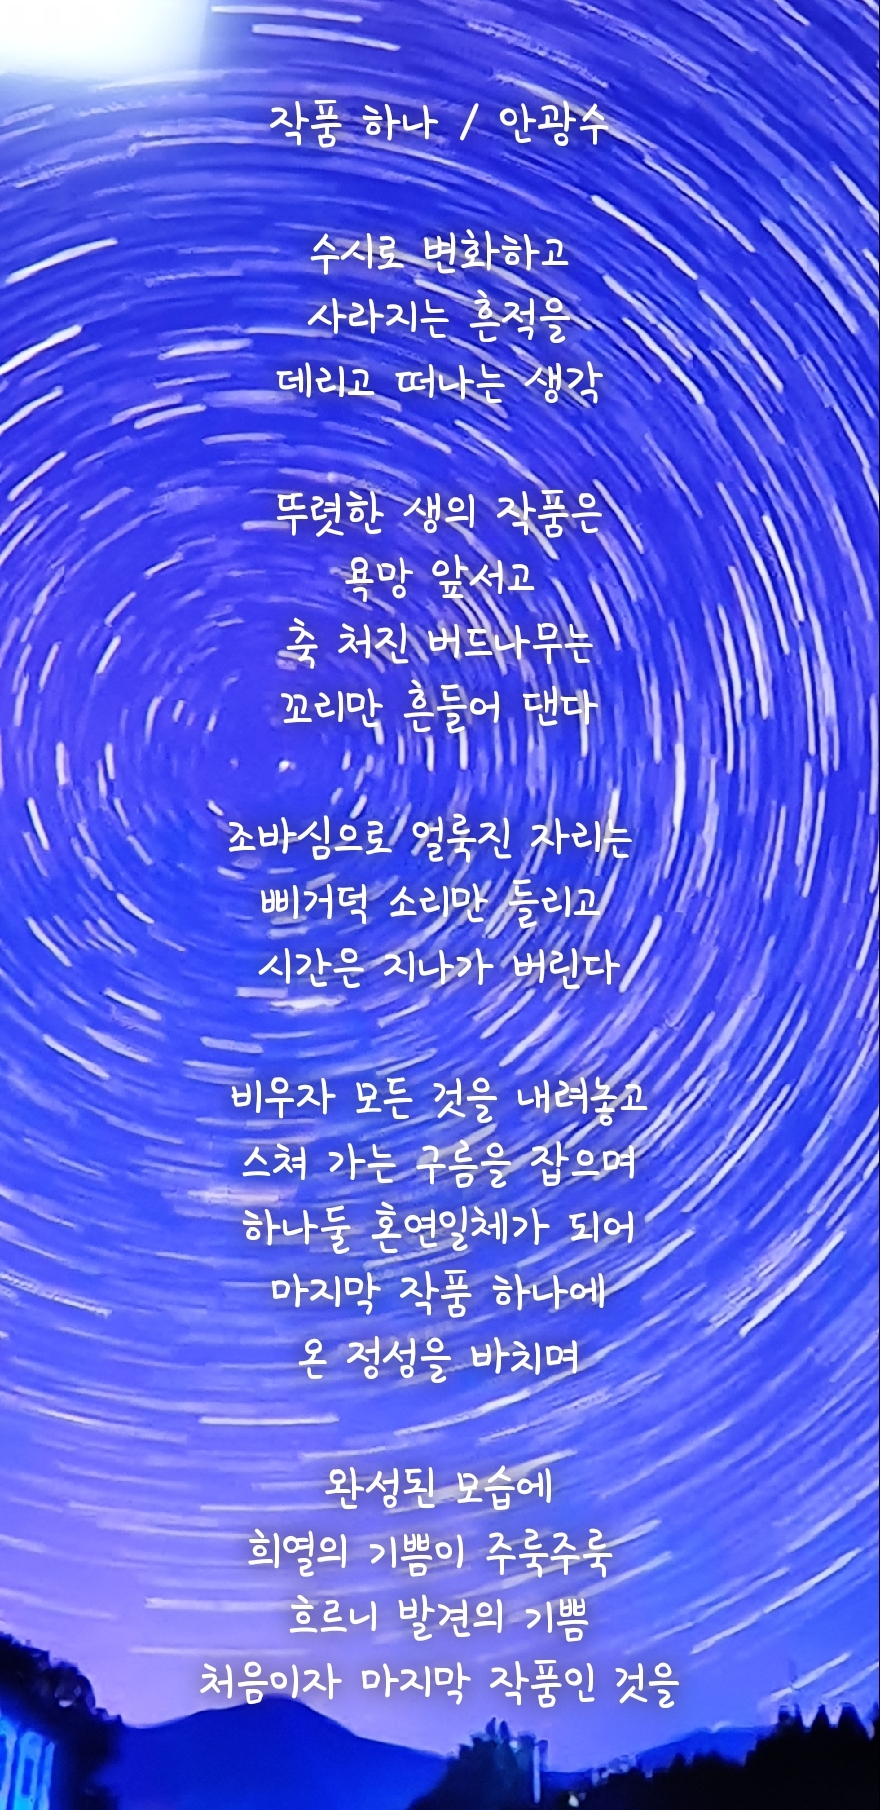 작품 하나 / 안광수
수시로 변화하고
사라지는 흔적을
데리고 떠나는 생각
뚜렷한 생의 작품은
욕망 앞서고
축 처진 버드나무는
꼬리만 흔들어 댄다
조바심으로 얼룩진 자리는
삐거덕 소리만 들리고
시간은 지나가 버린다
비우자 모든 것을 내려놓고
스쳐 가는 구름을 잡으며
하나둘 혼연일체가 되어
마지막 작품 하나에
온 정성을 바치며
완성된 모습에
희열의 기쁨이 주룩주룩
흐르니 발견의 기쁨
처음이자 마지막 작품인 것을